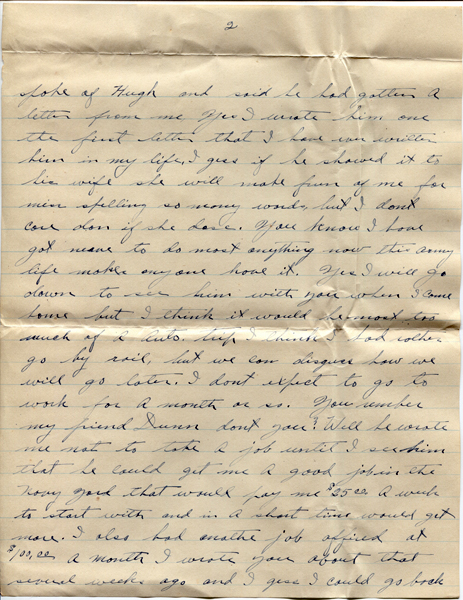 2
spoke of Hugh and said he had gotten a
letter from me Yes I wrote him one
the first letter that I have ever written
him in my life, I gess if he showed it to
his wife she will make fun of me for
miss spelling so many words, but I dont
care if she dose. You know I have
got nerve to do most anything now this army
life makes any one have it. Yes I will go
down to see him with you when I come
home but I think it would be most too
much of a auto. trip I think I had rather
go by rail, but we can disguss how we
will go later. I dont expect to go to
work for a month or so. You rember
my friend Dunn dont you? Well he wrote
me not to take a job until I see him
that he could get me a good job in the
Navy Yard that would pay me $25.00 a week
to start with and in a short time would get
more. I also had anothe job offired at
$100.00 a month I wrote you about that
several weeks ago and I gess I could go back